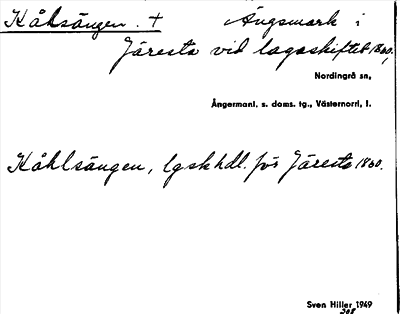 Kålsängen. + Ängsmark i
Järesta vid lagaskiftet 1860,
Nordingrå sn,
Ångermanl. s. doms. tg., Västernorrl. l.
Kåhlsängen, lgskhdl. för Järesta 1860.
Sven Hiller 1949
308